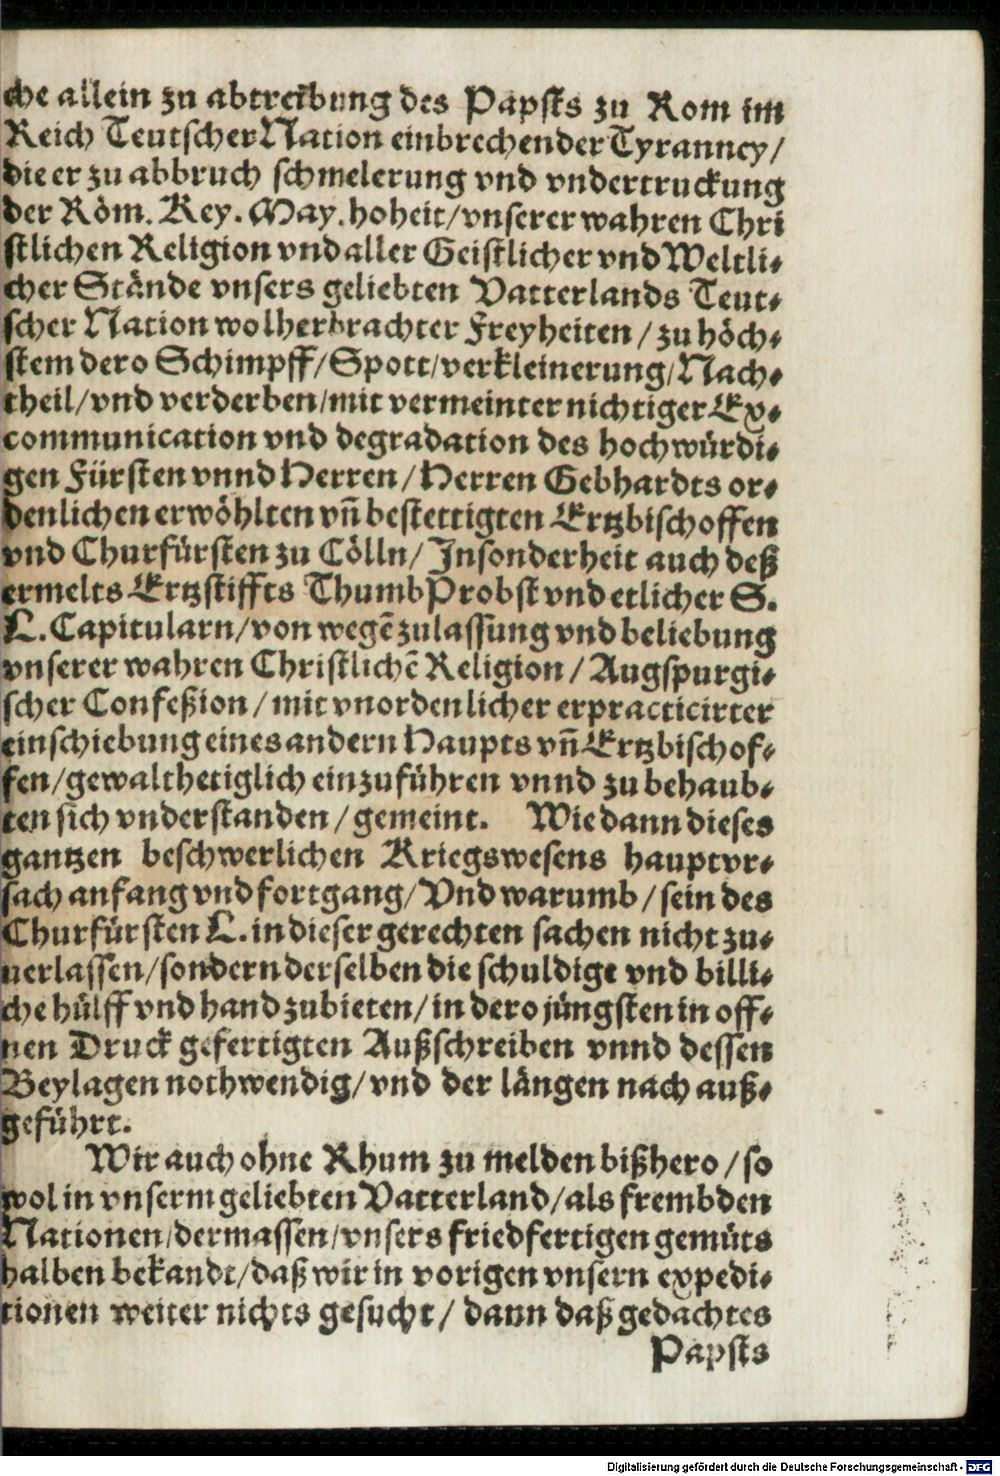 che allein zu abtreibung des Papsts zu Rom im
Reich Teutscher Nation einbrechender Tyranney/
die er zu abbruch schmelerung vnd vndertruckung
der Röm. Key. May. hoheit/ vnserer wahren Chri
stlichen Religion vnd aller Geistlicher vnd Weltli-
cher Stände vnsers geliebten Vatterlands Teut-
scher Nation wolherbrachter Freyheiten / zu höch-
stem dero Schimpff/ Spott/ verkleinerung/ Nach-
theil/ vnd verderben/ mit vermeinter nichtiger Ex-
communication vnd degradation des hochwürdi-
gen Fürsten vnnd Herren/ Herren Gebhardts or-
denlichen erwöhlten vn̄ bestettigten Ertzbischoffen
vnd Churfürsten zu Cölln/ Insonderheit auch deß
ermelts Ertzstiffts ThumbProbst vnd etlicher S.
L. Capitularn/ von wegē zulassung vnd beliebung
vnserer wahren Christlichē Religion / Augspurgi-
scher Confeßion / mit vnordenlicher erpracticirter
einschiebung eines andern Haupts vn̄ Ertzbischof-
fen/ gewalthetiglich einzuführen vnnd zu behaub-
ten sich vnderstanden / gemeint. Wie dann dieses
gantzen beschwerlichen Kriegswesens hauptvr-
sach anfang vnd fortgang/ Vnd warumb / sein des
Churfürsten L. in dieser gerechten sachen nicht zu-
uerlassen/ sondern derselben die schuldige vnd billi-
che hülff vnd hand zubieten/ in dero jüngsten in off-
nen Druck gefertigten Außschreiben vnnd dessen
Beylagen nothwendig/ vnd der längen nach auß-
geführt.
Wir auch ohne Rhum zu melden bißhero / so
wol in vnserm geliebten Vatterland/ als frembden
Nationen/ dermassen/ vnsers friedfertigen gemüts
halben bekandt/ daß wir in vorigen vnsern expedi-
tionen weiter nichts gesucht/ dann daß gedachtes
Papsts
Digitalisierung gefördert durch die Deutsche Forschungsgemeinschaft - DFG